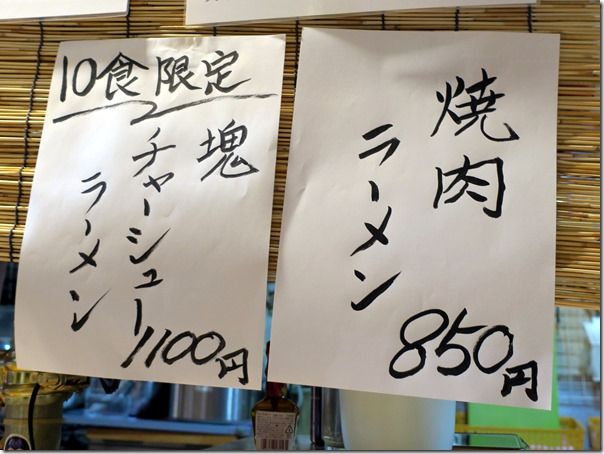 10食限定
塊
チャーシュー
ラーメン
1100円
焼肉
ラーメン
850円